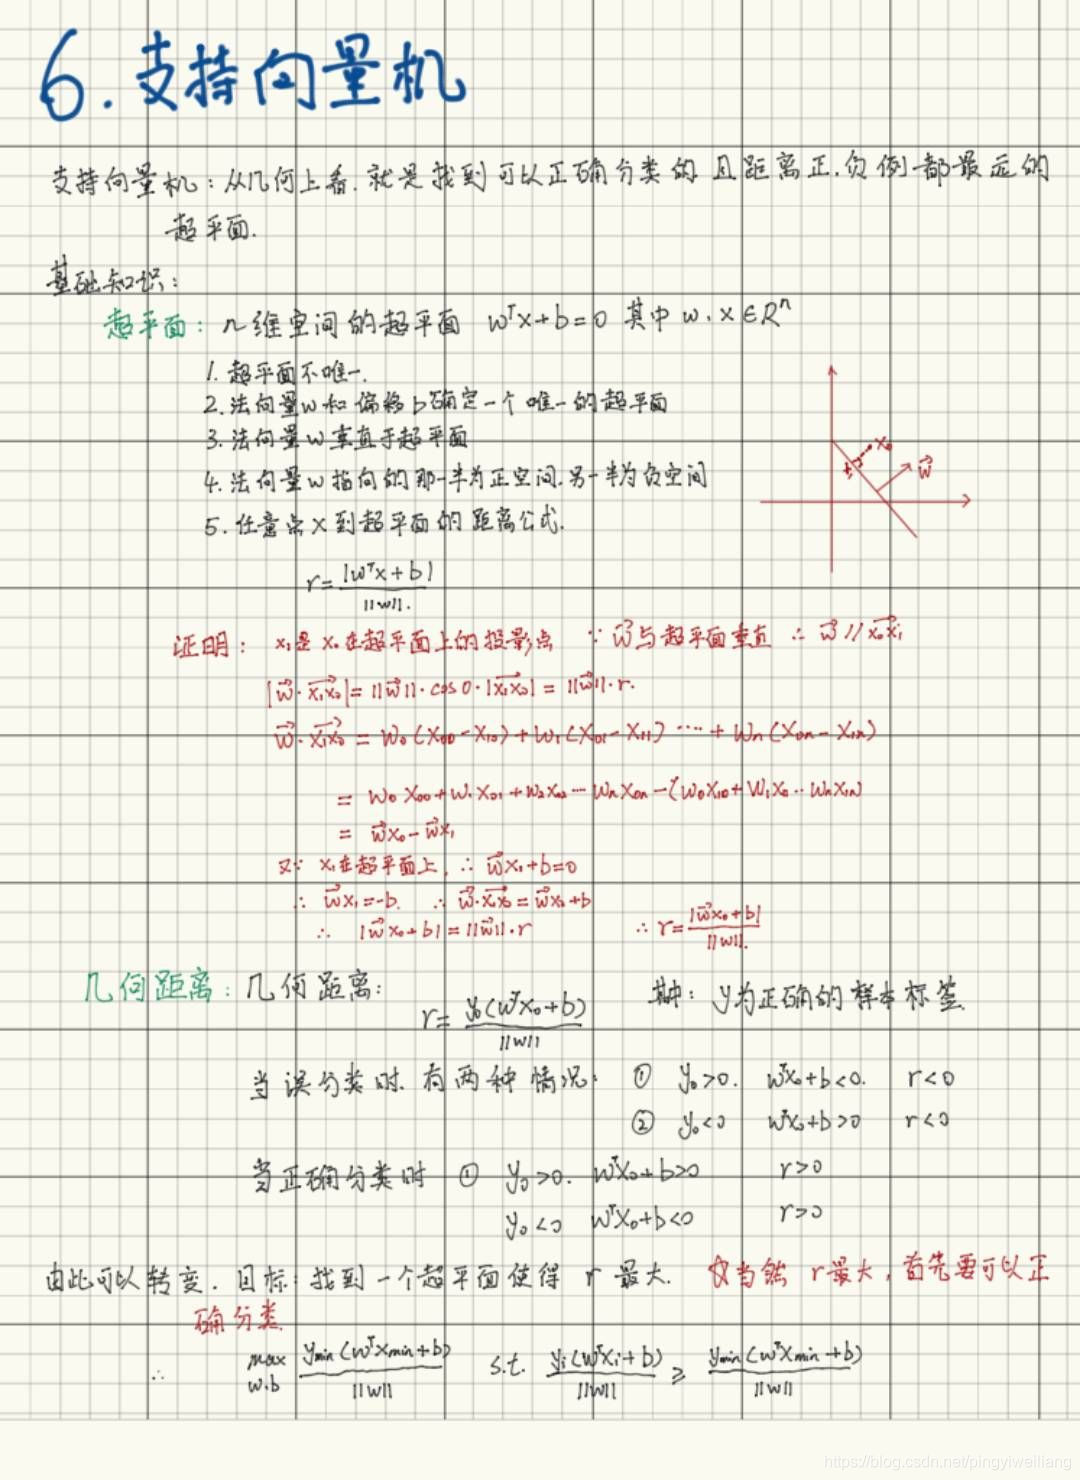 6.支持向量机
支持向量机:从几何上看.就是找到可以正确分类的且距离正.负例都最远的
超平面.
基础知识:
超平面: n维空间的超平面 wᵀx+b=0 其中 w.x∈Rⁿ
1.超平面不唯一.
2.法向量w和偏移b确定一个唯一的超平面
3.法向量w垂直于超平面
4.法向量w指向的那一半为正空间.另一半为负空间
5.任意点X到超平面的距离公式.
x₀
x₁
w⃗
r=|wᵀx+b|/||w||.
证明: x₁是x₀在超平面上的投影点 ∵w⃗与超平面垂直 ∴w⃗∥x₀x₁
|w⃗·x₁x₀|=||w⃗||·cos0·|x₁x₀|=||w⃗||·r.
w⃗·x₁x₀=w₀(x₀₀-x₁₀)+w₁(x₀₁-x₁₁)····+wₙ(x₀ₙ-x₁ₙ)
=w₀x₀₀+w₁x₀₁+w₂x₀₂···wₙx₀ₙ-(w₀x₁₀+w₁x₀··wₙx₁ₙ
=w⃗x₀-w⃗x₁
又∵ x₁在超平面上,∴w⃗x₁+b=0
∴ w⃗x₁=-b. ∴w⃗·x₁x₀=w⃗x₀+b
∴ |w⃗x₀+b|=||w⃗||·r ∴r=|w⃗x₀+b|/||w||.
几何距离: 几何距离: r=y₀(wᵀx₀+b)/||w|| 其中: y为正确的样本标签
当误分类时.有两种情况: ① y₀>0. wᵀx₀+b<0. r<0
② y₀<0 wᵀx₀+b>0 r<0
当正确分类时 ① y₀>0. wᵀx₀+b>0 r>0
y₀<0 wᵀx₀+b<0 r>0
由此可以转变.目标:找到一个超平面使得 r 最大. ☆当然 r最大,首先要可以正
确分类
∴ max w.b y_min(wᵀx_min+b)/||w|| s.t. y_i(wᵀx_i+b)/||w|| ≥ y_min(wᵀx_min+b)/||w||
https://blog.csdn.net/pingyiweiliang